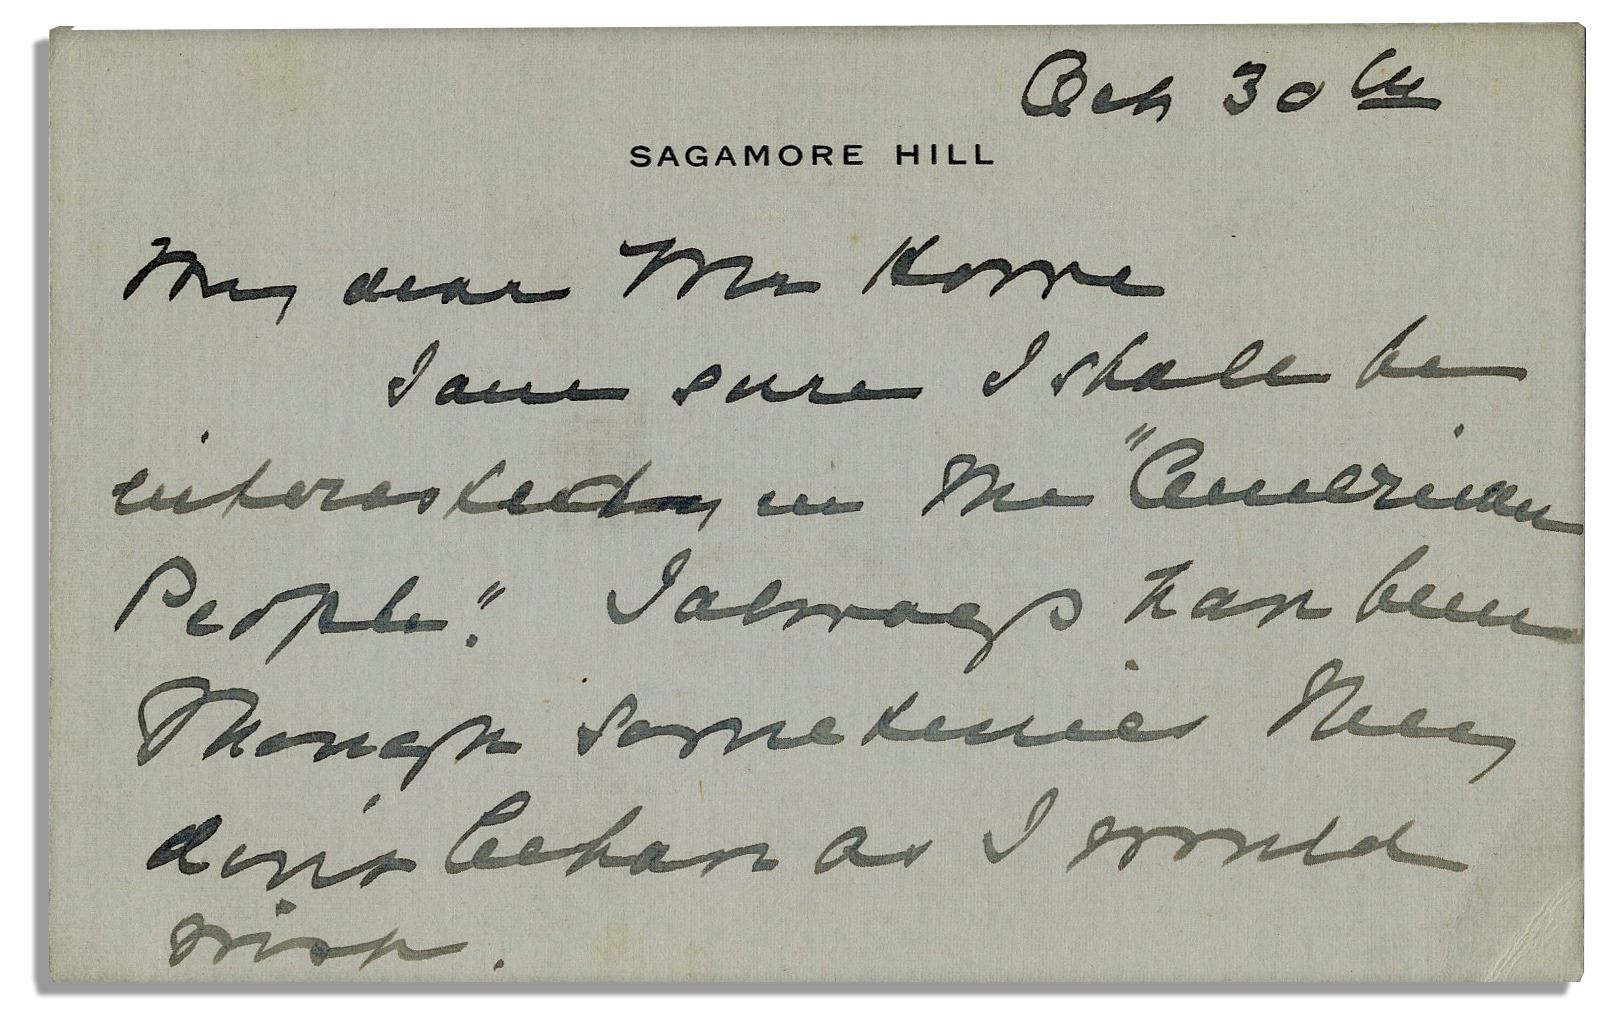 Oct 30th
SAGAMORE HILL
My dear Mr Howe
I am sure I shall be
interested in the "American
People". I always have been
though sometimes they
don't behave as I would
wish.